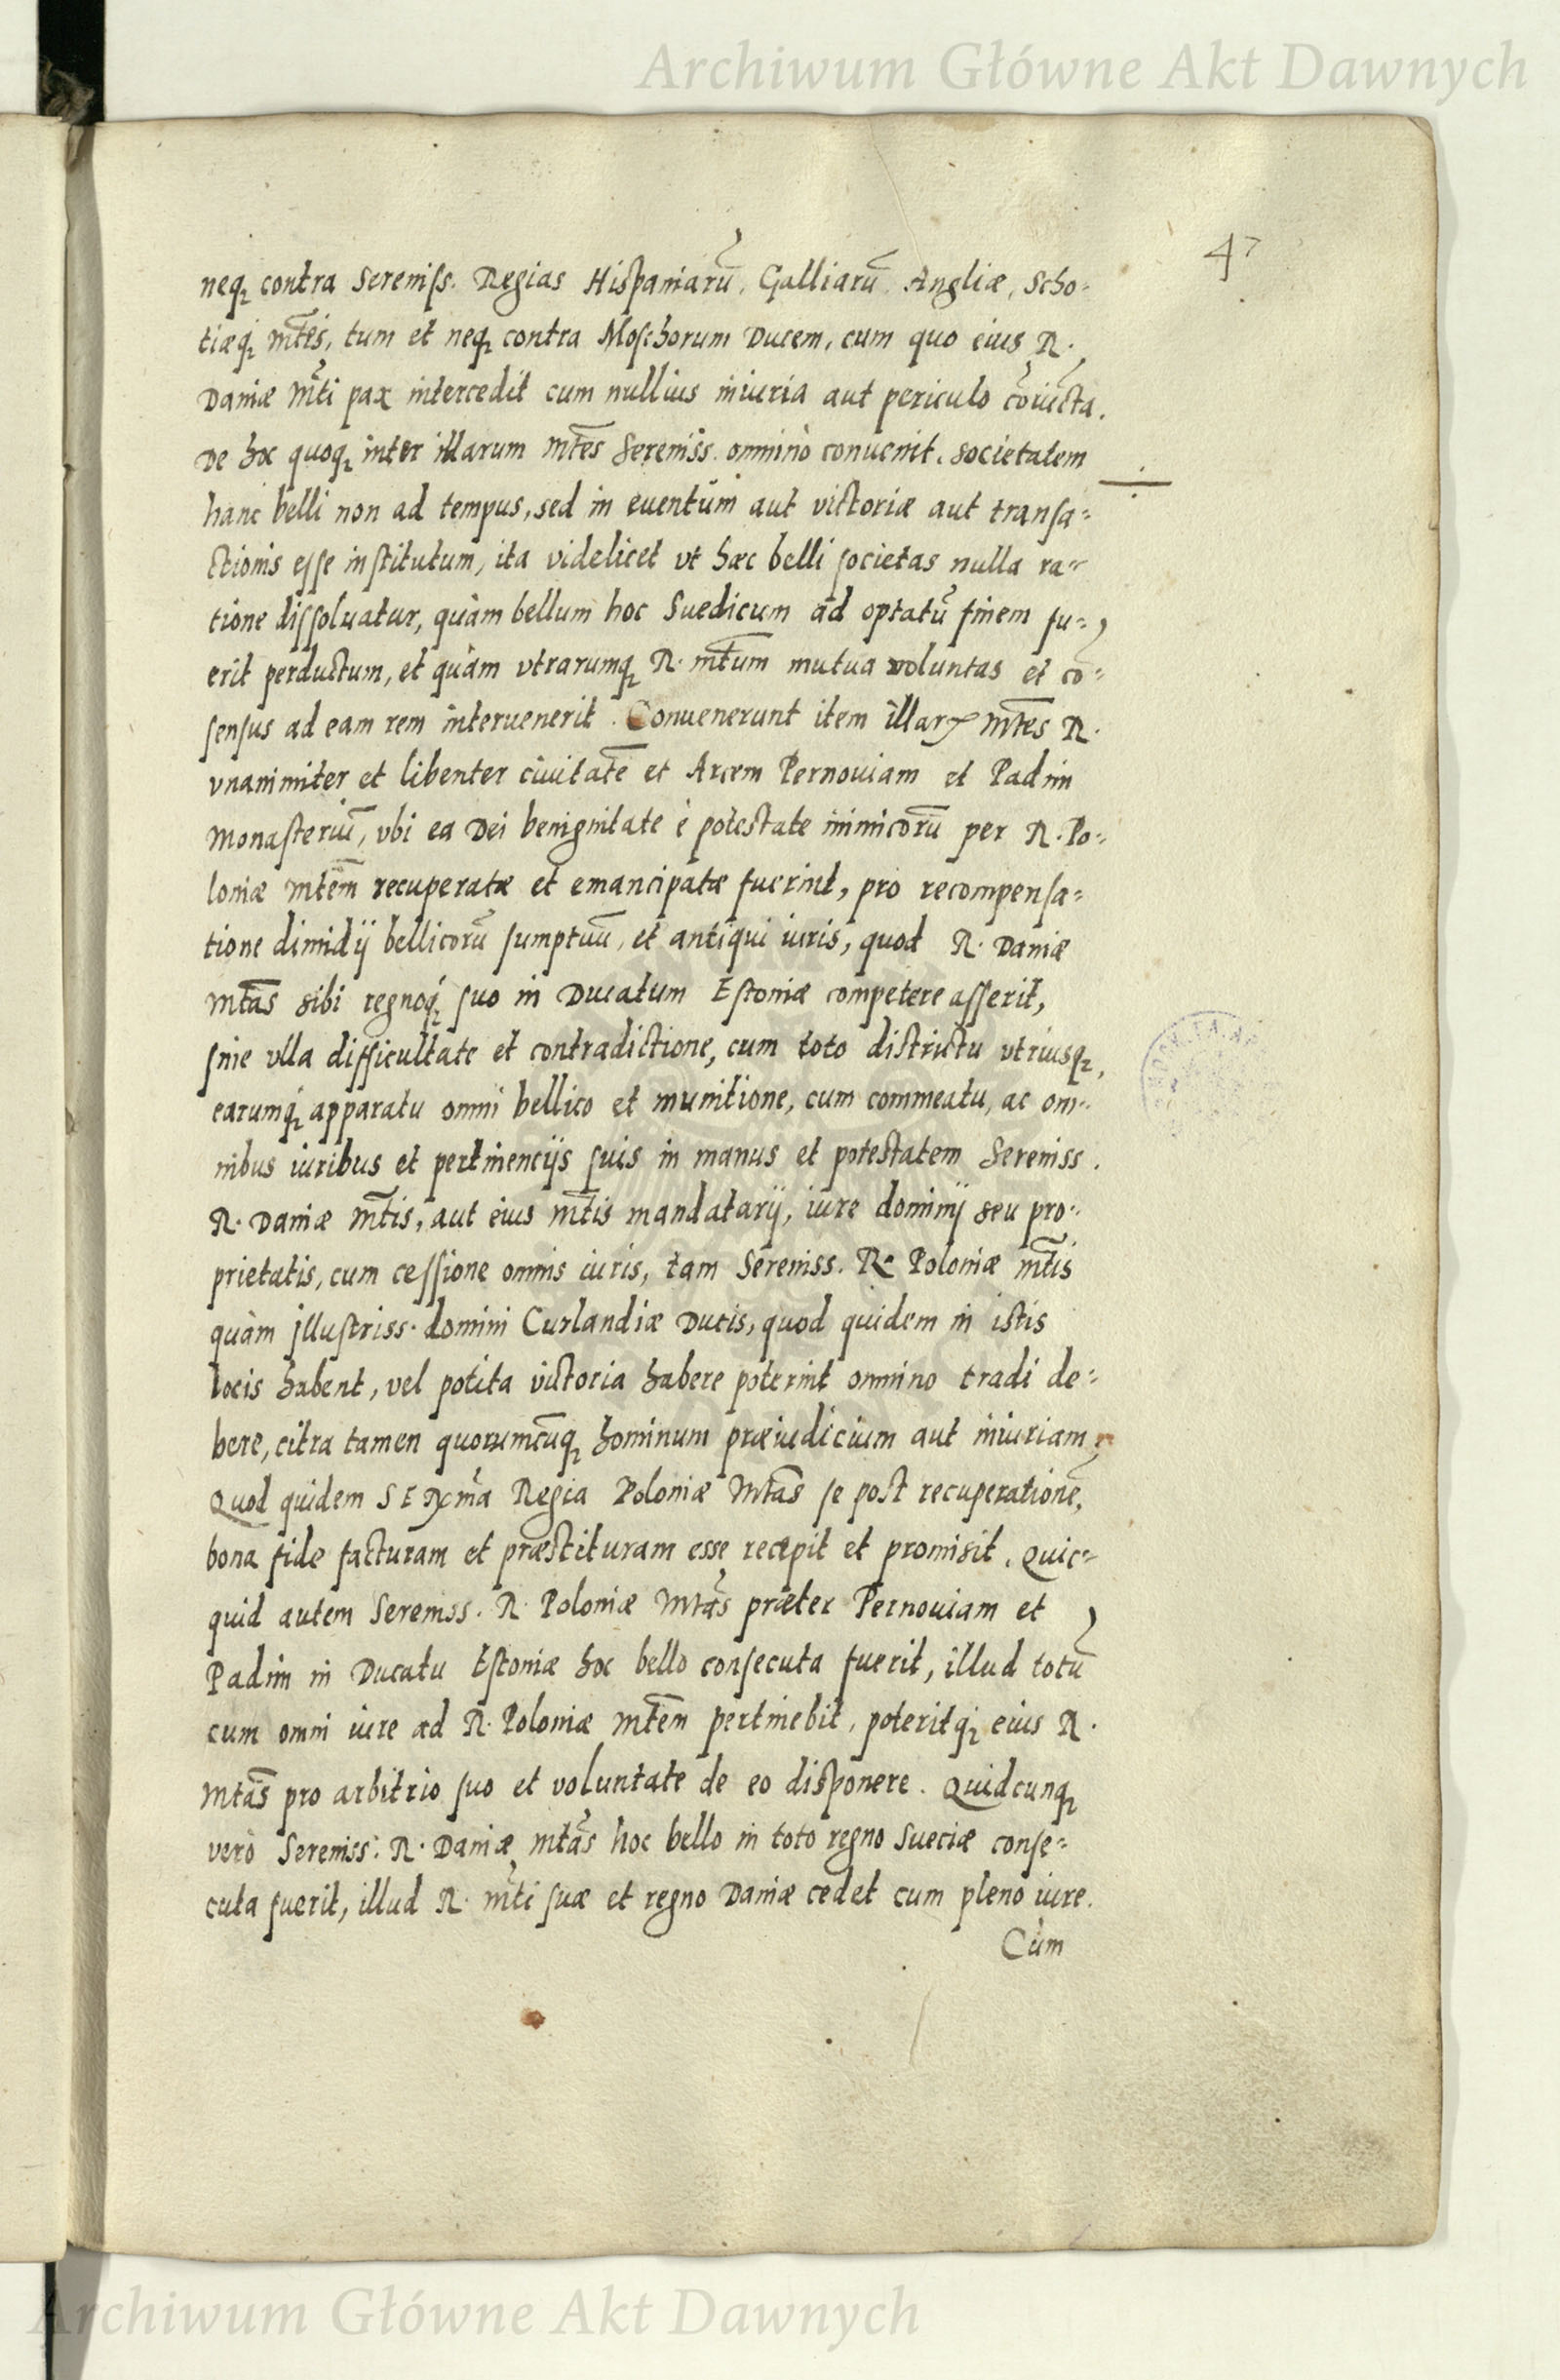 Archiwum Główne Akt Dawnych
47
neqꝫ contra Sereniss. Regias Hispaniarū, Galliarū, Angliæ, Scho⸗
tiæqꝫ mt̄es, tum et neqꝫ contra Moschorum Ducem, cum quo eius R.
Daniæ Mt̄i pax intercedit cum nullius iniuria aut periculo cōiūcta.
De hoc quoqꝫ inter illarum Mt̄es Sereniss. omninò conuenit. societatem
hanc belli non ad tempus, sed in euentum aut victoriæ aut transa⸗
ctionis esse institutum, ita videlicet vt hæc belli societas nulla ra⸗
tione dissoluatur, quàm bellum hoc Suedicum ad optatū finem fu⸗
erit perductum, et quàm vtrarumqꝫ R. mt̄um mutua voluntas et cō⸗
sensus ad eam rem interuenerit. Conuenerunt item illarꝝ Mt̄es R.
vnanimiter et libenter ciuitatē et Arcem Pernouiam et Padim
monasteriū, vbi ea Dei benignitate è potestate inimicorū per R. Po⸗
loniæ Mt̄em recuperatæ et emancipatæ fuerint, pro recompensa⸗
tione dimidij bellicorū sumptuū, et antiqui iuris, quod R. Daniæ
Mt̄as sibi regnoqꝫ suo in Ducatum Estoniæ competere asserit,
sine vlla difficultate et contradictione, cum toto districtu vtriusqꝫ,
earumqꝫ apparatu omni bellico et munitione, cum commeatu, ac om⸗
nibus iuribus et pertinencijs suis in manus et potestatem Sereniss.
R. Daniæ Mt̄is, aut eius Mt̄is mandatarij, iure dominij seu pro⸗
prietatis, cum cessione omnis iuris, tam Sereniss. Re Poloniæ Mt̄is
quàm illustriss. domini Curlandiæ Ducis, quod quidem in istis
locis habent, vel potita victoria habere poterint omnino tradi de⸗
bere, citra tamen quorumcūqꝫ hominum præiudicium aut iniuriam,
Quod quidem SERꝫma Regia Poloniæ Mt̄as se post recuperationē,
bona fide facturam et præstituram esse recepit et promisit. Quic⸗
quid autem Sereniss. R. Poloniæ Mt̄as præter Pernouiam et
Padim in Ducatu Estoniæ hoc bello consecuta fuerit, illud totū
cum omni iure ad R. Poloniæ Mt̄em pertinebit, poteritqꝫ eius R.
Mt̄as pro arbitrio suo et voluntate de eo disponere. Quidcunqꝫ
verò Sereniss: R. Daniæ mt̄as hoc bello in toto regno Sueciæ conse⸗
cuta fuerit, illud R. mt̄i suæ et regno Daniæ cedet cum pleno iure.
Cùm
Archiwum Główne Akt Dawnych